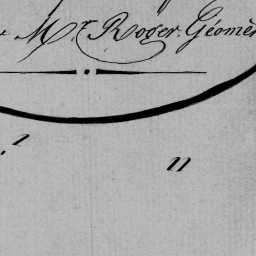 Mr. Roger. Géomè
1
11